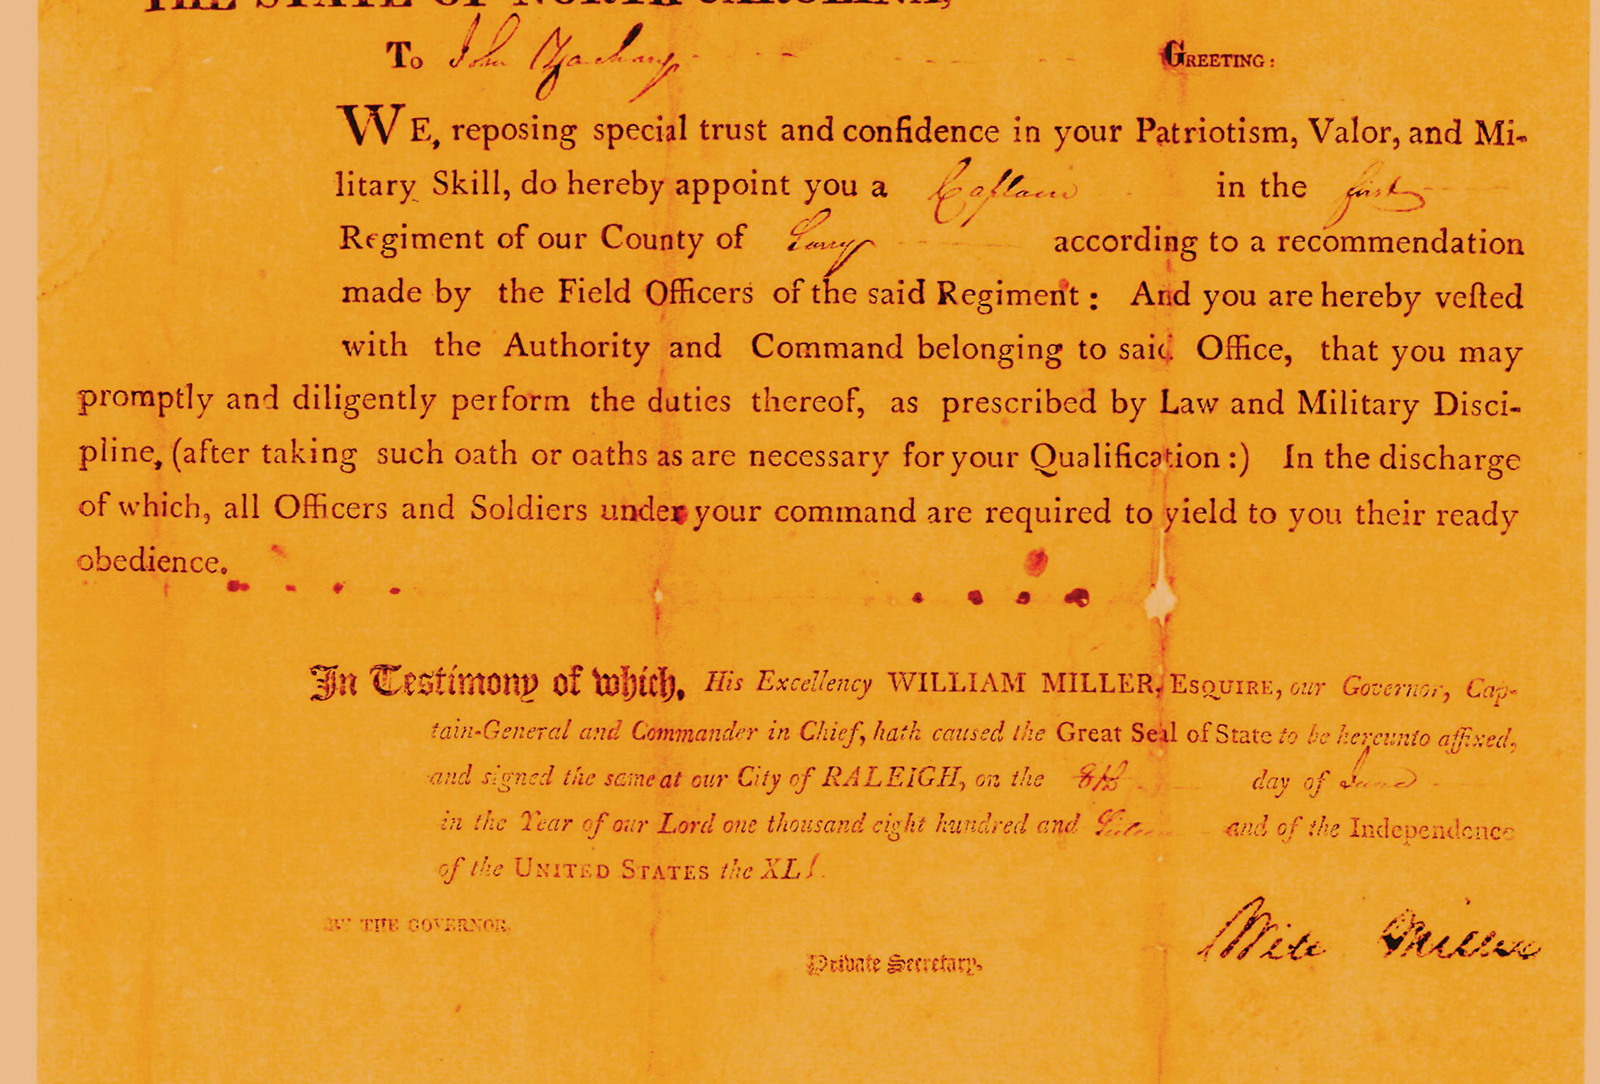 THE STATE OF NORTH CAROLINA,
To John Zachary GREETING:
WE, reposing special trust and confidence in your Patriotism, Valor, and Mi-
litary Skill, do hereby appoint you a Captain in the first
Regiment of our County of Surry according to a recommendation
made by the Field Officers of the said Regiment: And you are hereby veſted
with the Authority and Command belonging to said Office, that you may
promptly and diligently perform the duties thereof, as prescribed by Law and Military Disci-
pline, (after taking such oath or oaths as are necessary for your Qualification:) In the discharge
of which, all Officers and Soldiers under your command are required to yield to you their ready
obedience.
In Testimony of which, His Excellency WILLIAM MILLER, ESQUIRE, our Governor, Cap-
tain-General and Commander in Chief, hath caused the Great Seal of State to be hereunto affixed,
and signed the same at our City of RALEIGH, on the 8th day of June
in the Year of our Lord one thousand eight hundred and Sixteen and of the Independence
of the UNITED STATES the XL
BY THE GOVERNOR.
Will Miller
Private Secretary.